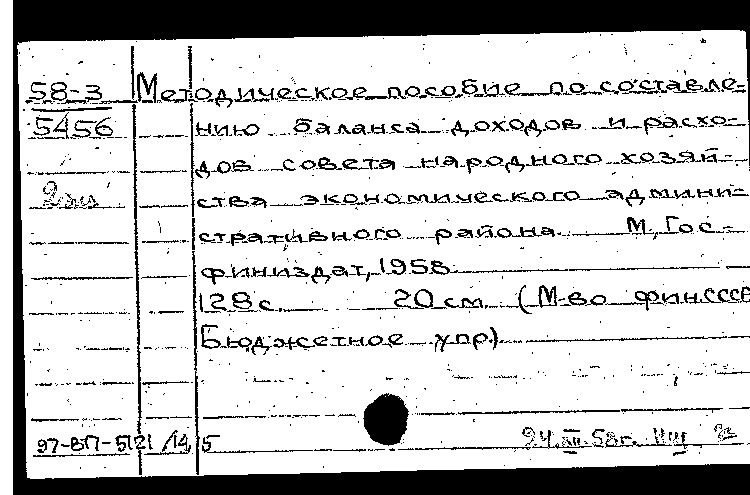 58-3 Методическое пособие по составле-
5456 нию баланса доходов и расхо-
дов совета народного хозяй-
2 ства экономического админи-
стративного района. М., Гос-
финиздат, 1958.
128 с. 20 см. (М-во фин. СССР
Бюджетное упр.).
97-ВП-5121/14, 5 24.XII.58г.